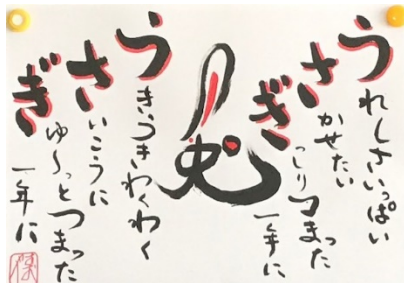 うれしさいっぱい
さかせたい
ぎっしりつまった
一年に
うきうきわくわく
さいこうに
ぎゅ〜っとつまった
一年に